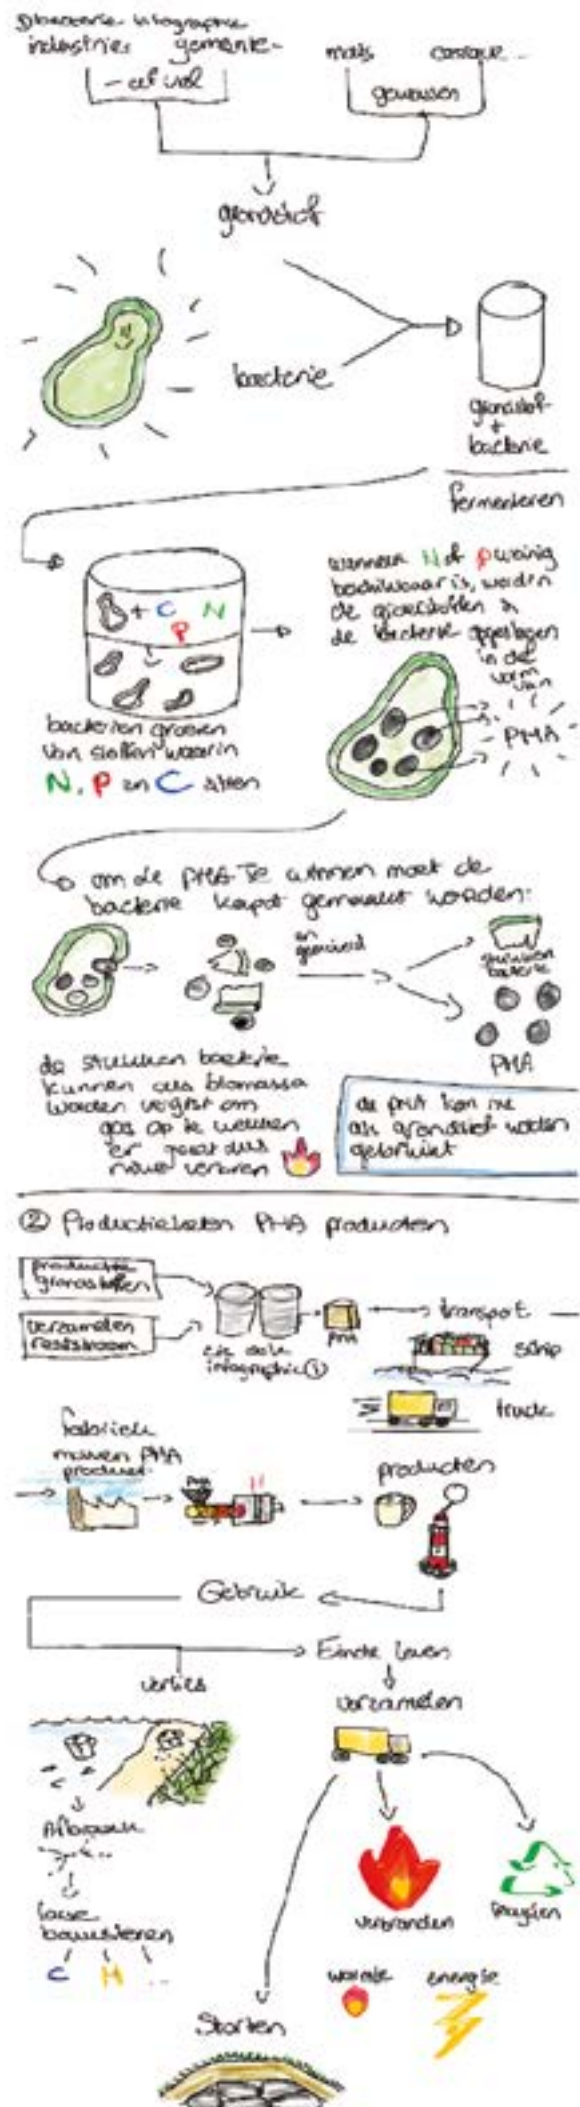 ① bacterie infographic
industrie, gemeente
- afval
mais
gewassen
grondstof
bacterie
grondstof
+
bacterie
fermenteren
+ C N
P
bacterien groeien
van stoffen waarin
N, P en C zitten
wanneer N of P weinig
beschikbaar is, worden
de
de bacterie opgeslagen
in de
vorm
van
PHA
om de PHA te winnen moet de
bacterie kapot gemaakt worden:
en
gezuiverd
stukken
bacterie
PHA
de stukken bacterie
kunnen als biomassa
worden vergist om
gas op te wekken
er gaat dus
niks verloren
de PHA kan nu
als grondstof worden
gebruikt
② Productieketen PHA producten
productie
grondstoffen
verzamelen
reststroom
zie ook
infographic ①
PHA
transport
schip
truck
fabriek
maken PHA
product
PHA
producten
Gebruik
Einde leven
verlies
verzamelen
Afbraak
losse
bouwstenen
C H ..
verbranden
recyclen
warmte
energie
Storten